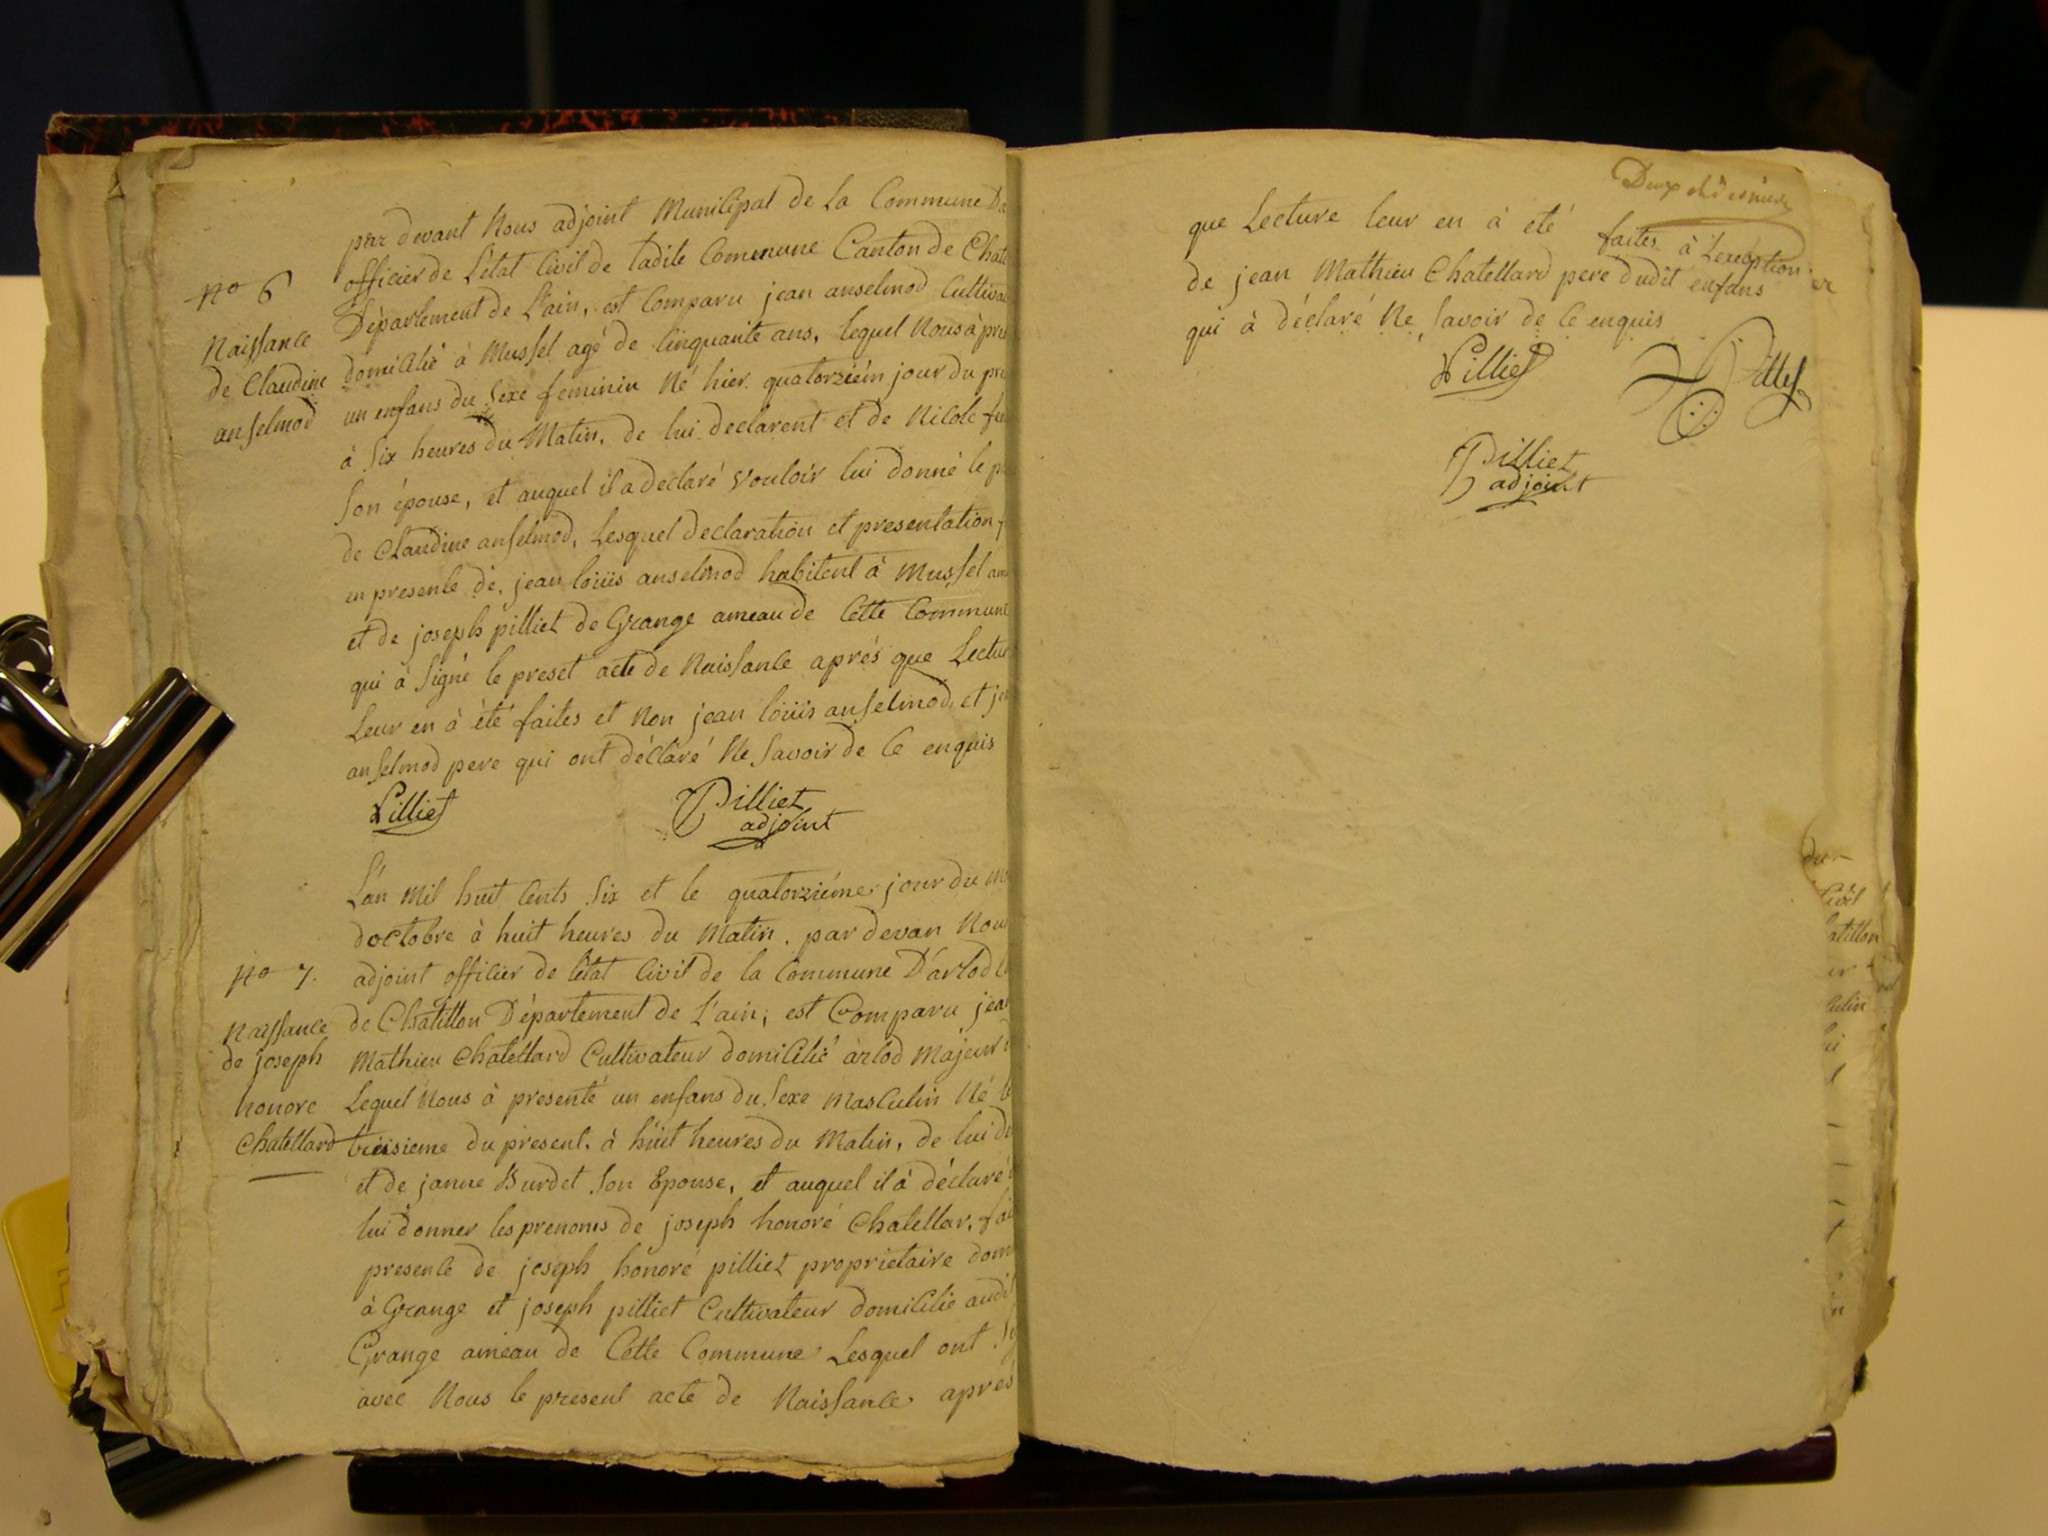 par devant Nous adjoint Municipal de La Commune
officier de L'état Civil de ladite Commune Canton de
No 6
Département de L'ain, est Comparu jean anselmod
Naissance
de Claudine
anselmod
domicilié à Mussel agé de Cinquante ans, lequel Nous à
un enfans du Sexe feminin Né hier quatorziém jour du
à Six heures du Matin, de lui declarent et de Nicole
Son épouse, et auquel il a declaré vouloir lui donné le
de Claudine anselmod, Lesquel declaration et presentation
en presente de, jean loüis anselmod habitent à Mussel
et de joseph pilliet de Grange ameau de Cette Commune
qui à Signé le preset acte de Naissance aprés que
Leur en à été faites et Non jean loüis anselmod, et
anselmod pere qui ont déclaré Ne Savoir de Ce enquis
Pilliet
Pilliet
adjoint
L'an Mil huit Cents Six et le quatorziéme jour du
doctobre à huit heures du Matin. par devan
No 7.
adjoint officier de l'état Civil de la Commune D'arlod
Naissance
de joseph
honore
Chatellard
de Chatillon Département de L'ain, est Comparu
Mathieu Chatellard Cultivateur domicilié arlod Majeur
Lequel Nous à presenté un enfans du Sexe Masculin Né
treisieme du present. à huit heures du Matin, de lui
et de janne Burdet Son Epouse, et auquel il à déclaré
lui donner les prenoms de joseph honoré Chatellar,
presente de joseph honoré pilliet proprietaire
à Grange et joseph pilliet Cultivateur domicilié
Grange ameau de Cette Commune Lesquel ont
avec Nous le present acte de Naissance après
que Lecture leur en à été faites à L'exeption
de jean Mathieu Chatellard pere dudit enfans
qui à déclaré Ne Savoir de Ce enquis
Pilliet
Pilliet
adjoint